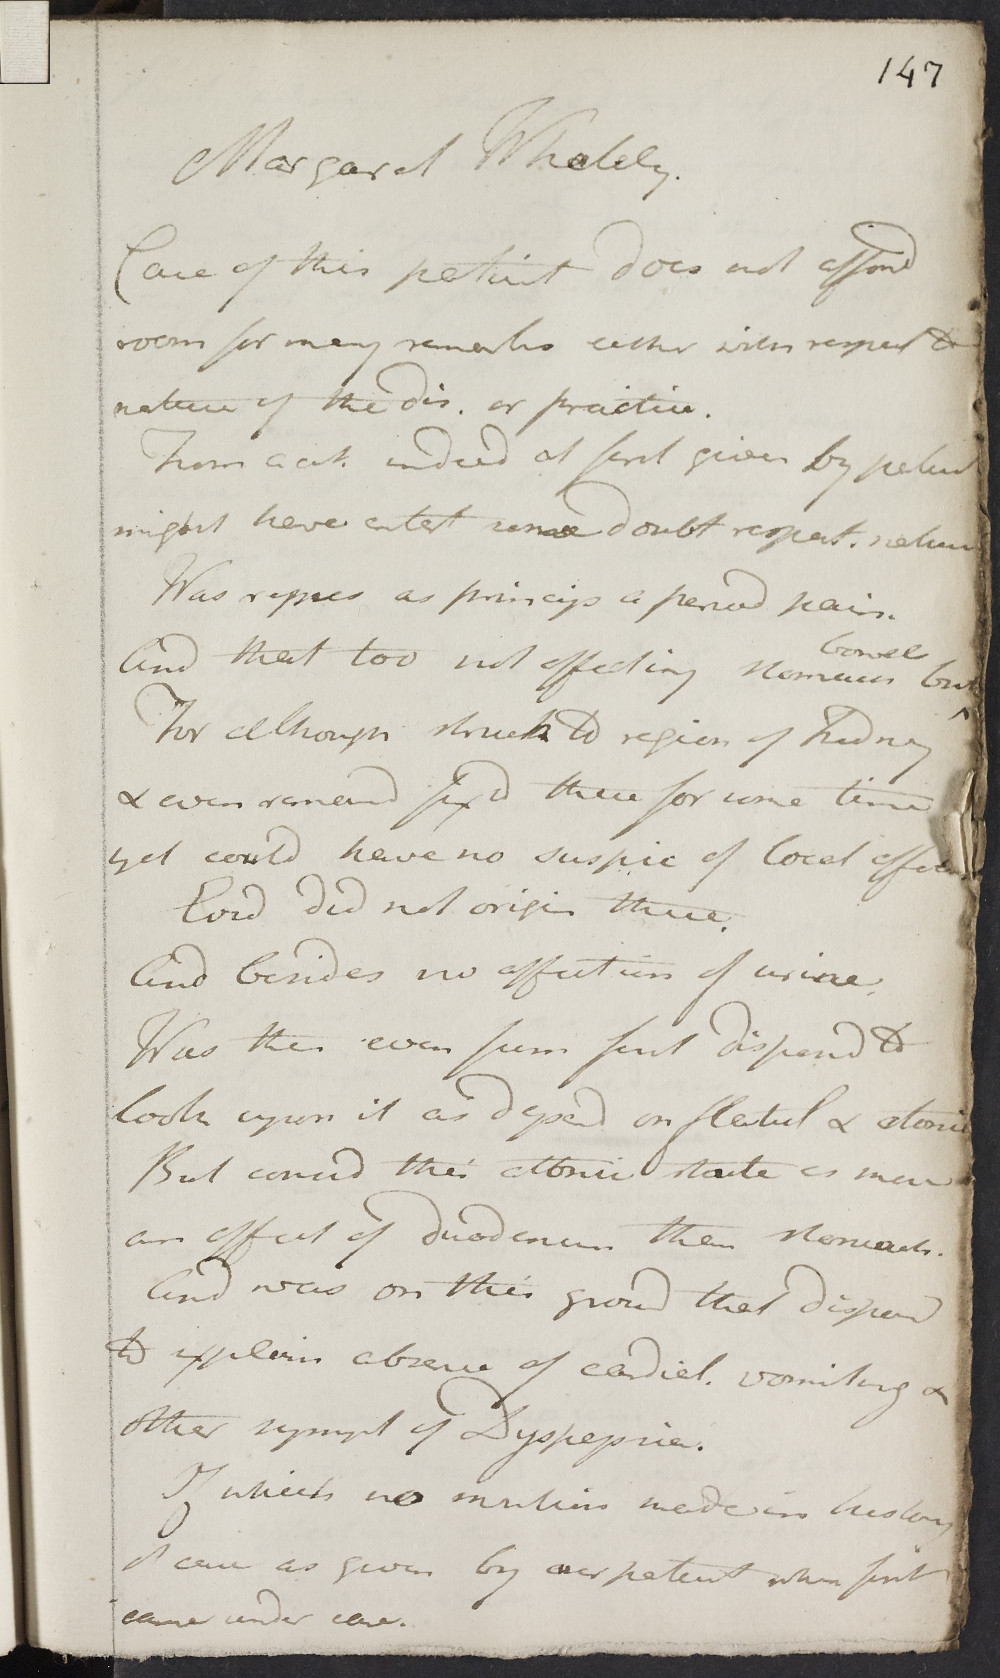 147
Margaret Whalely.
Case of this patient does not afford
room for many remarks either with respect to
nature of the dis. or practice.
From acct. indeed at first given by patient
might have entert some doubt respect. nature
Was repres as princip a period pain.
And that too not affecting stomach but bowel
For although struck to region of kidney
& even remaind fixd there for some time
yet could have no suspic of local affect
Cord did not origin there.
And besides no affection of urine.
Was then even from first disposd to
look upon it as depend on flatul & atonic
But consid this atonic state as more
an affect of duodenum than stomach.
And was on this ground that disposd
to explain absence of cardial. vomiting &
other sympt of Dyspepsia.
Of which no mention made in history
of case as given by our patient when first
came under care.